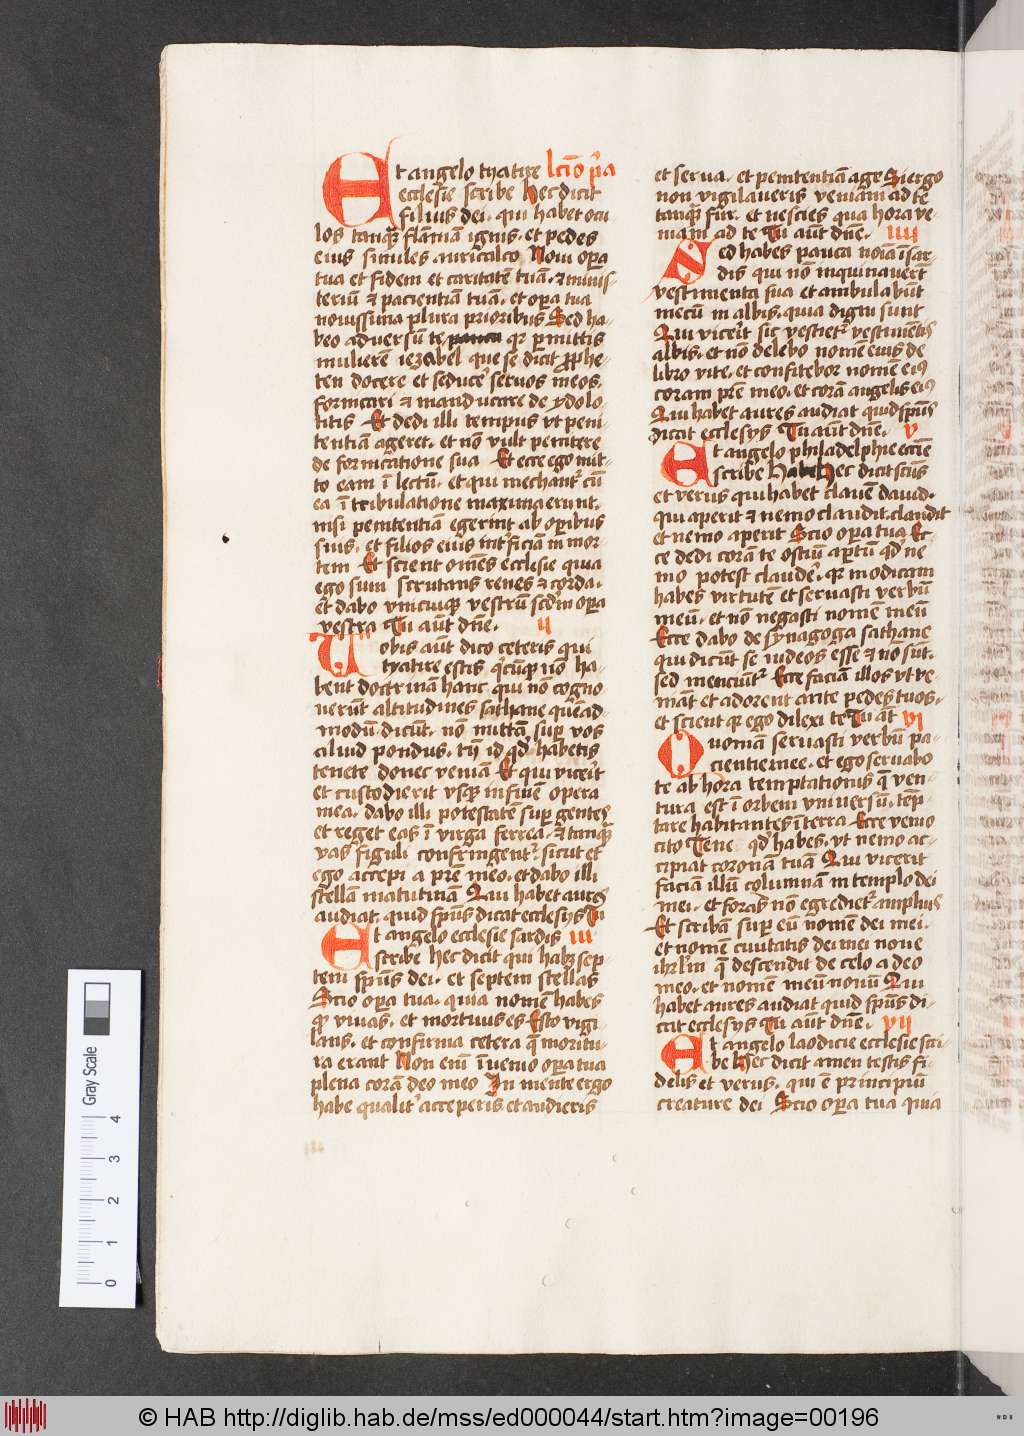 Et angelo tyatire lcīo p'a
ecclesie scribe Hec dicit
filius dei . qui habet ocu
los tanqꝫ flam̄ā ignis . et pedes
eius similes auricalco Noui oꝑa
tua et fidem et caritatē tuā . ⁊ minis-
teriū ⁊ pacientiā tuā . et oꝑa tua
nouissima plura prioribus Sed ha-
beo aduersū te pauca qꝛ ꝑmittis
mulierē iezabel que se dicit ꝓphe-
ten docere et seduce' seruos meos .
fornicari ⁊ manducare de ydolo-
titis Et dedi illi tempus vt peni-
tentiā ageret . et nō vult penitere
de fornicatione sua Et ecce ego mit-
to eam ī lectū . et qui mechant' cū
ea ī tribulatione maxima erunt .
nisi penitentiā egerint ab oꝑibus
suis . et filios eius int'ficiā in mor-
tem Et scient om̄es ecclesie quia
ego sum scrutans renes ⁊ corda .
et dabo vnicuiqꝫ vestrū scd'm oꝑa
vestra Tu aūt dn̄e . ii
Uobis aūt dico ceteris qui
tyatire estis q'cūqꝫ nō ha-
bent doctrinā hanc qui nō cogno
uerūt altitudines sathane quēad-
modū dicūt . nō mittā suꝑ vos
aliud pondus . tn̄ id qd' habetis
tenete donec veniā Et qui vice'it
et custodierit vsqꝫ in finē opera
mea . dabo illi potestatē suꝑ gentes
et reget eas ī virga ferrea . ⁊ tanqꝫ
vas figuli confringent' . sicut et
ego accepi a pr̄e meo . et dabo illi
stellam matutinā Qui habet aures
audiat . quid sp̄us dicat ecclesys Tu
Et angelo ecclesie sardis iii
scribe hec dicit qui habꝫ sep-
tem sp̄us dei . et septem stellas
Scio oꝑa tua . quia nomē habes
qꝫ viuas . et mortuus es Esto vigi-
lans . et confirma cetera q̄ moritu-
ra erant Non enī īuenio oꝑa tua
plena corā deo meo In mente ergo
habe qualit' acceperis et audieris
et serua . et penitentiā age Si ergo
non vigilaueris veniam ad te
tanqꝫ fur . et nescies qua hora ve-
niam ad te Tu aūt dn̄e . iiii
Sed habes pauca noīa ī sar-
dis qui nō inquinauer̄t
vestimenta sua et ambulabūt
mecū in albis . quia digni sunt
Qui vice'it sic vestiet' vestimētis
albis . et nō delebo nomē eius de
libro vite . et confitebor nomē ei9
coram pr̄e meo . et corā angelis ei9
Qui habet aures audiat quid sp̄us
dicat ecclesys Tu aūt dn̄e . v
Et angelo philadelphie eccīe
scribe Hec dicit sc̄us
et verus qui habet clauē dauid .
qui aperit ⁊ nemo claudit . claudit
et nemo aperit Scio oꝑa tua Ec-
ce dedi corā te ostiū aꝑtū qd' ne
mo potest claude' . qꝛ modicam
habes virtutē et seruasti verbū
meū . et nō negasti nomē meū
Ecce dabo de synagoga sathane
qui dicūt se iudeos esse ⁊ nō sūt .
sed menciunt' Ecce faciam illos vt ve-
niāt et adorent ante pedes tuos .
et scient qꝫ ego dilexi te Tu aūt vi
Quoniam seruasti verbū pa-
cientie mee . et ego seruabo
te ab hora temptationis q̄ ven-
tura est ī orbem vniuersū . tēp-
tare habitantes ī terra Ecce venio
cito Tene qd' habes . vt nemo ac-
cipiat coronā tuā Qui vicerit
faciam illū columnā in templo dei
mei . et foras nō egrediet' amplius
Et scribā suꝑ eū nomē dei mei .
et nomē ciuitatis dei mei noue
ihrl'm q̄ descendit de celo a deo
meo . et nomē meū nouū Qui
habet aures audiat quid sp̄us di-
cat ecclesys Tu aūt dn̄e . vii
Et angelo laodicie ecclesie scri-
be Hec dicit amen testis fi-
delis et verus . qui ē principiū
creature dei Scio oꝑa tua quia
Gray Scale
0 1 2 3 4
© HAB http://diglib.hab.de/mss/ed000044/start.htm?image=00196